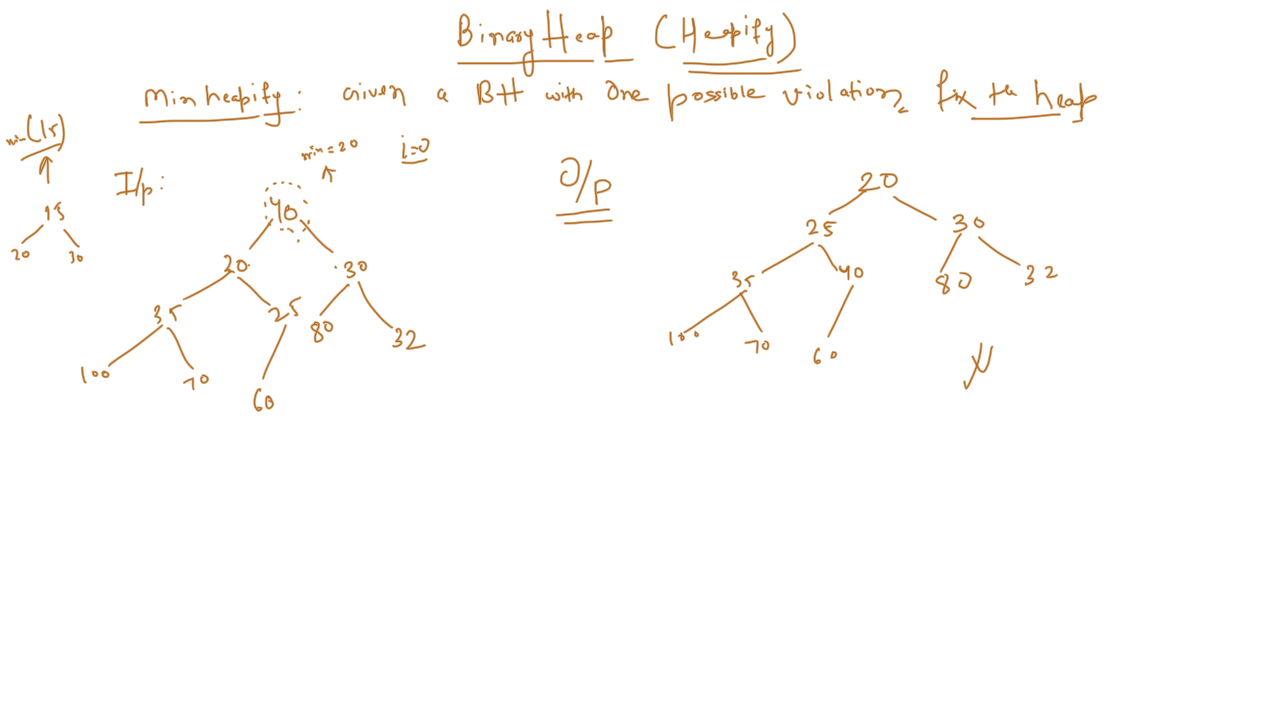 Binary Heap (Heapify)
Min heapify: Given a BH with One possible violation, fix the heap
min (15)
15
20 30
I/p:
min = 20
i=0
40
20 30
35 25 80 32
100 70 60
O/p
20
25 30
35 40 80 32
100 70 60